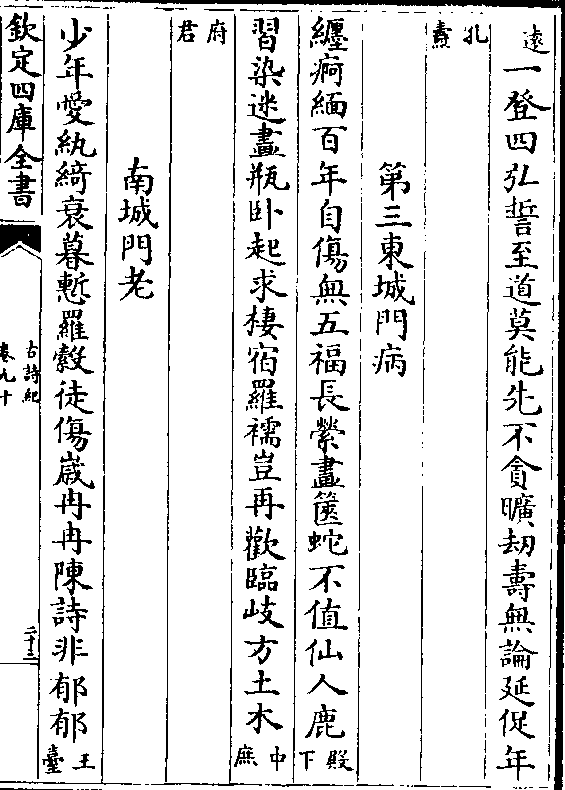 遠一登四弘誓至道莫能先不貪曠劫壽無論延促年
孔燾
第三東城門病
纏痾緬百年自傷無五福長縈畫篋蛇不值仙人鹿殿下
習染迷畫瓶卧起求棲宿羅襦豈再歡臨歧方土木中庶
府君
南城門老
少年愛紈綺衰暮慙羅縠徒傷嵗冉冉陳詩非郁郁王臺
欽定四庫全書
古詩紀
卷九十
二十三